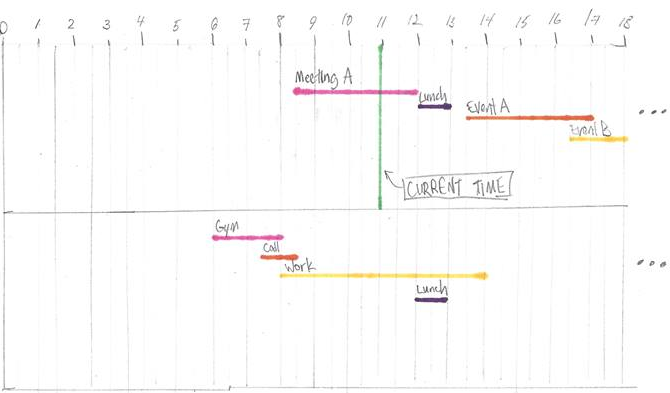 0 1 2 3 4 5 6 7 8 9 10 11 12 13 14 15 16 17 18
Meeting A
Lunch
Event A
Event B
CURRENT TIME
Gym
Call
Work
Lunch